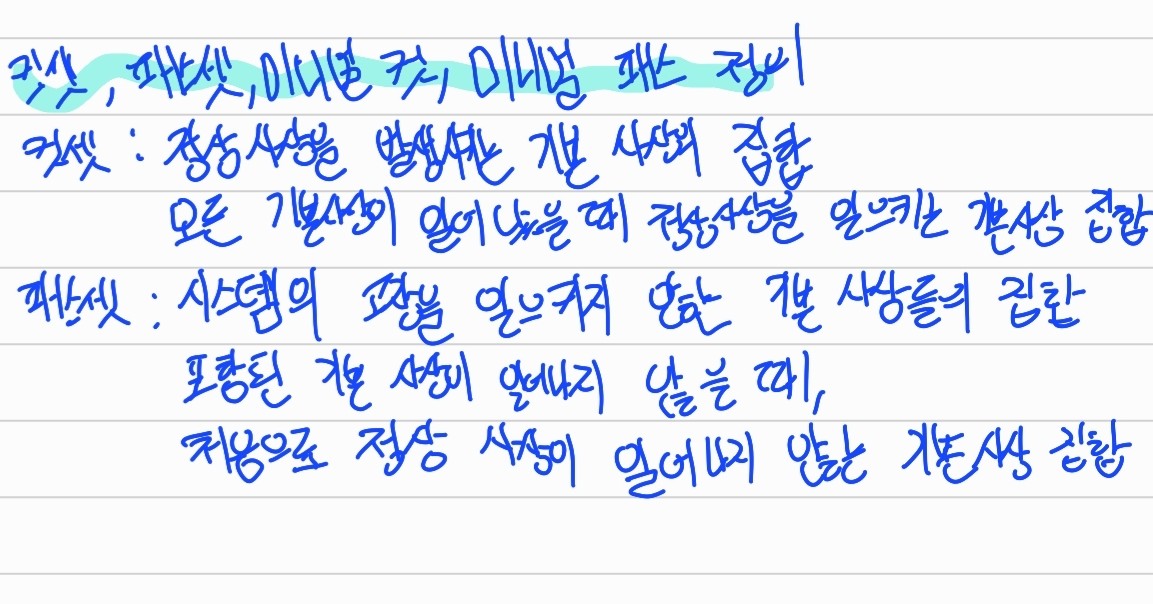 컷셋, 패스셋, 미니멀 컷, 미니멀 패스 정의
컷셋 : 정상사상을 발생시키는 기본 사상의 집합
모든 기본사상이 일어났을 때 정상사상을 일으키는 기본사상 집합
패스셋 : 시스템의 고장을 일으키지 않는 기본 사상들의 집합
포함된 기본 사상이 일어나지 않을 때,
처음으로 정상 사상이 일어나지 않는 기본사상 집합